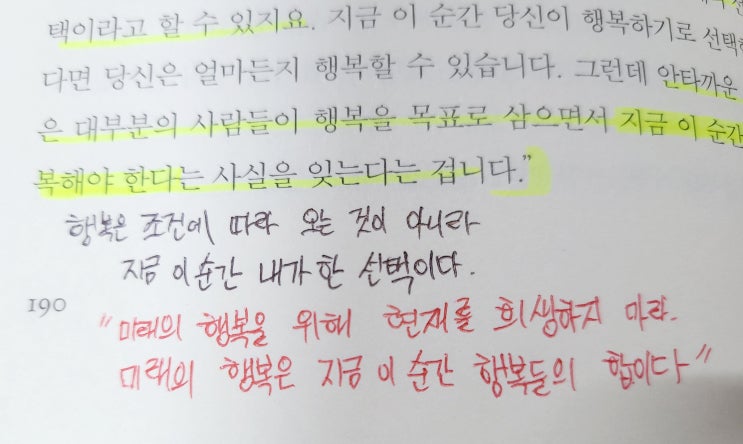 택이라고 할 수 있지요. 지금 이 순간 당신이 행복하기로 선택한
다면 당신은 얼마든지 행복할 수 있습니다. 그런데 안타까운
은 대부분의 사람들이 행복을 목표로 삼으면서 지금 이 순간
복해야 한다는 사실을 잊는다는 겁니다.”
행복은 조건에 따라 오는 것이 아니라
지금 이 순간 내가 한 선택이다.
190
"미래의 행복을 위해 현재를 희생하지 마라.
미래의 행복은 지금 이 순간 행복들의 합이다"